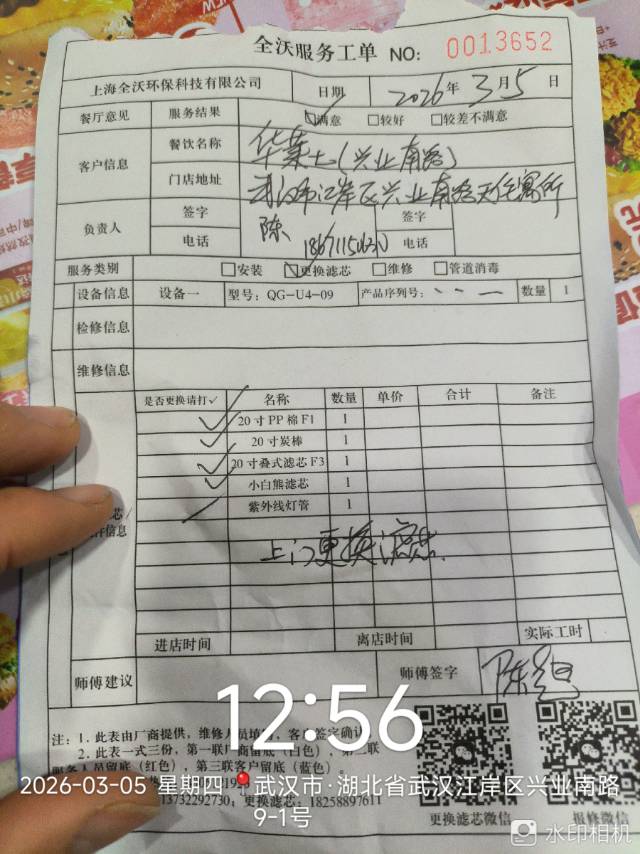 全沃服务工单 NO: 0013652
上海全沃环保科技有限公司 日期 2026年3月5日
餐厅意见 服务结果 ☑满意 □较好 □较差不满意
客户信息 餐饮名称 华莱士(兴业南路)
门店地址 武汉市江岸区兴业南路天佳寓所
负责人 签字 陈 签字
电话 电话
服务类别 □安装 ☑更换滤芯 □维修 □管道消毒
设备信息 设备一 型号: QG-U4-09 产品序列号: 数量 1
检修信息
维修信息
是否更换请打✓ 名称 数量 单价 合计 备注
✓ 20寸PP棉F1 1
✓ 20寸炭棒 1
✓ 20寸叠式滤芯F3 1
✓ 小白熊滤芯 1
紫外线灯管 1
芯
件信息
上门更换滤芯
进店时间 离店时间 实际工时
师傅建议 师傅签字 陈
12:56
注: 1. 此表由厂商提供, 维修人员填写, 客户签字确认
2. 此表一式三份, 第一联厂商留底(白色), 第二联
服务人员留底(红色), 第三联客户留底(蓝色)。
2026-03-05 星期四 武汉市·湖北省武汉江岸区兴业南路
9-1号
13732292730; 更换滤芯: 18258897611
更换滤芯微信 报修微信
水印相机